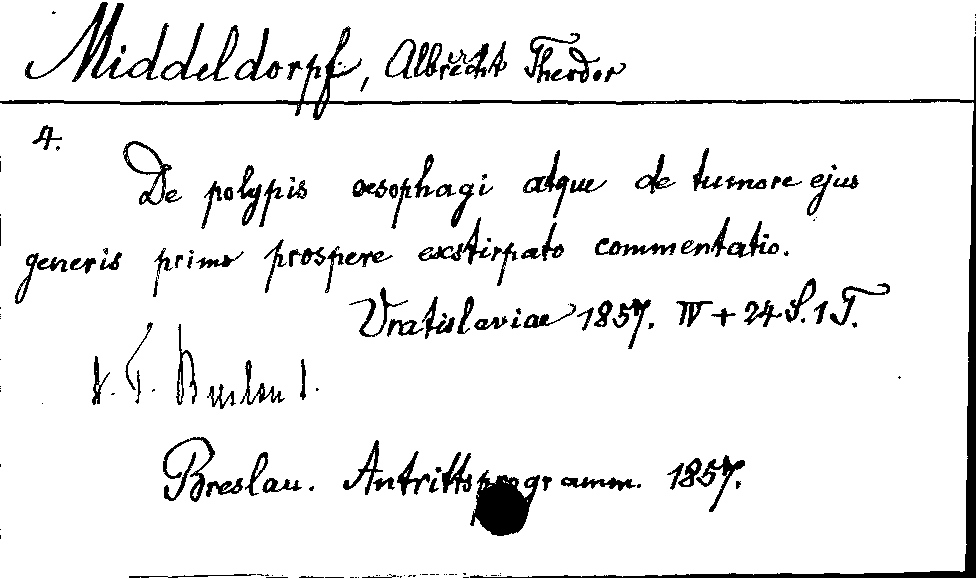 Middeldorpf, Albrecht Theodor
4.
De polypis œsophagi atque de tumore ejus
generis primo prospere exstirpato commentatio.
Vratislaviae 1857. IV + 24 S. 1 T.
Breslau 1.
Breslau. Antrittsprogramm. 1857.